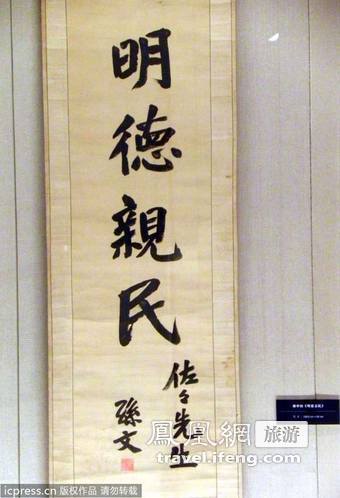 明德親民
佐々先生
孫文
鳳凰網 旅游
travel.ifeng.com
icpress.cn 版权作品 请勿转载